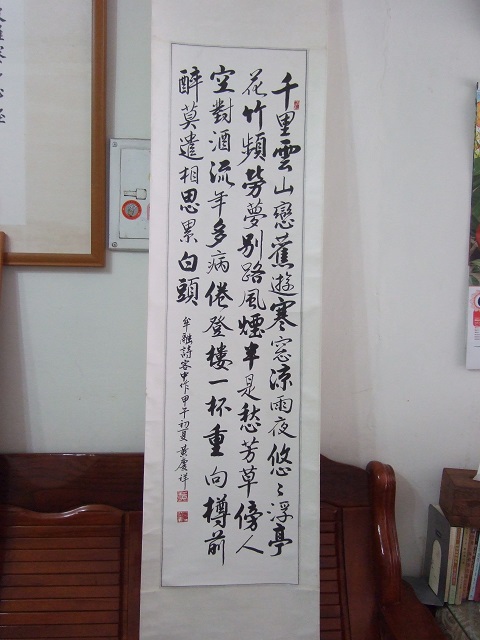 千里雲山戀舊遊寒窓涼雨夜悠〻浮亭
花竹頻勞夢別路風煙半是愁芳草傍人
空對酒流年多病倦登樓一杯重向樽前
醉莫遣相思累白頭
牟融詩客中作甲午初夏黃慶祥